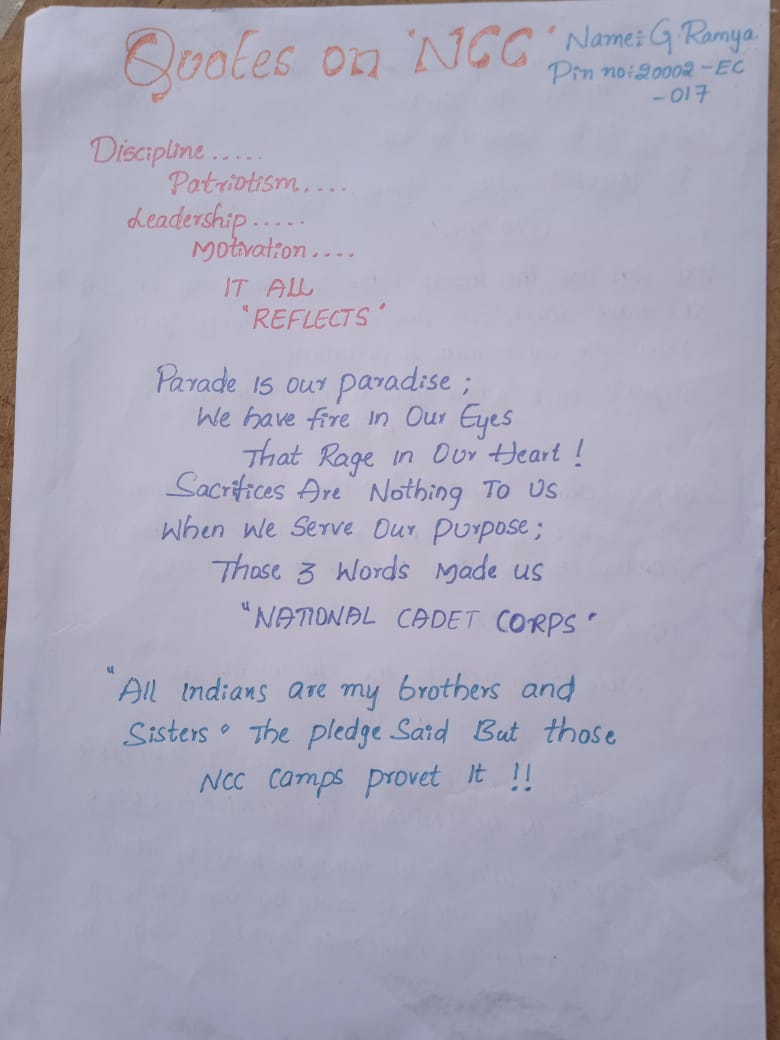 Quotes on 'NCC'
Name: G. Ramya
Pin no: 20002-EC
-017
Discipline.....
Patriotism....
Leadership.....
Motivation....
IT ALL
"REFLECTS"
Parade is our paradise;
We have fire in Our Eyes
That Rage in Our Heart!
Sacrifices Are Nothing To Us
When We Serve Our Purpose;
Those 3 Words Made us
"NATIONAL CADET CORPS"
"All Indians are my brothers and
Sisters" The pledge Said But those
NCC Camps provet It !!